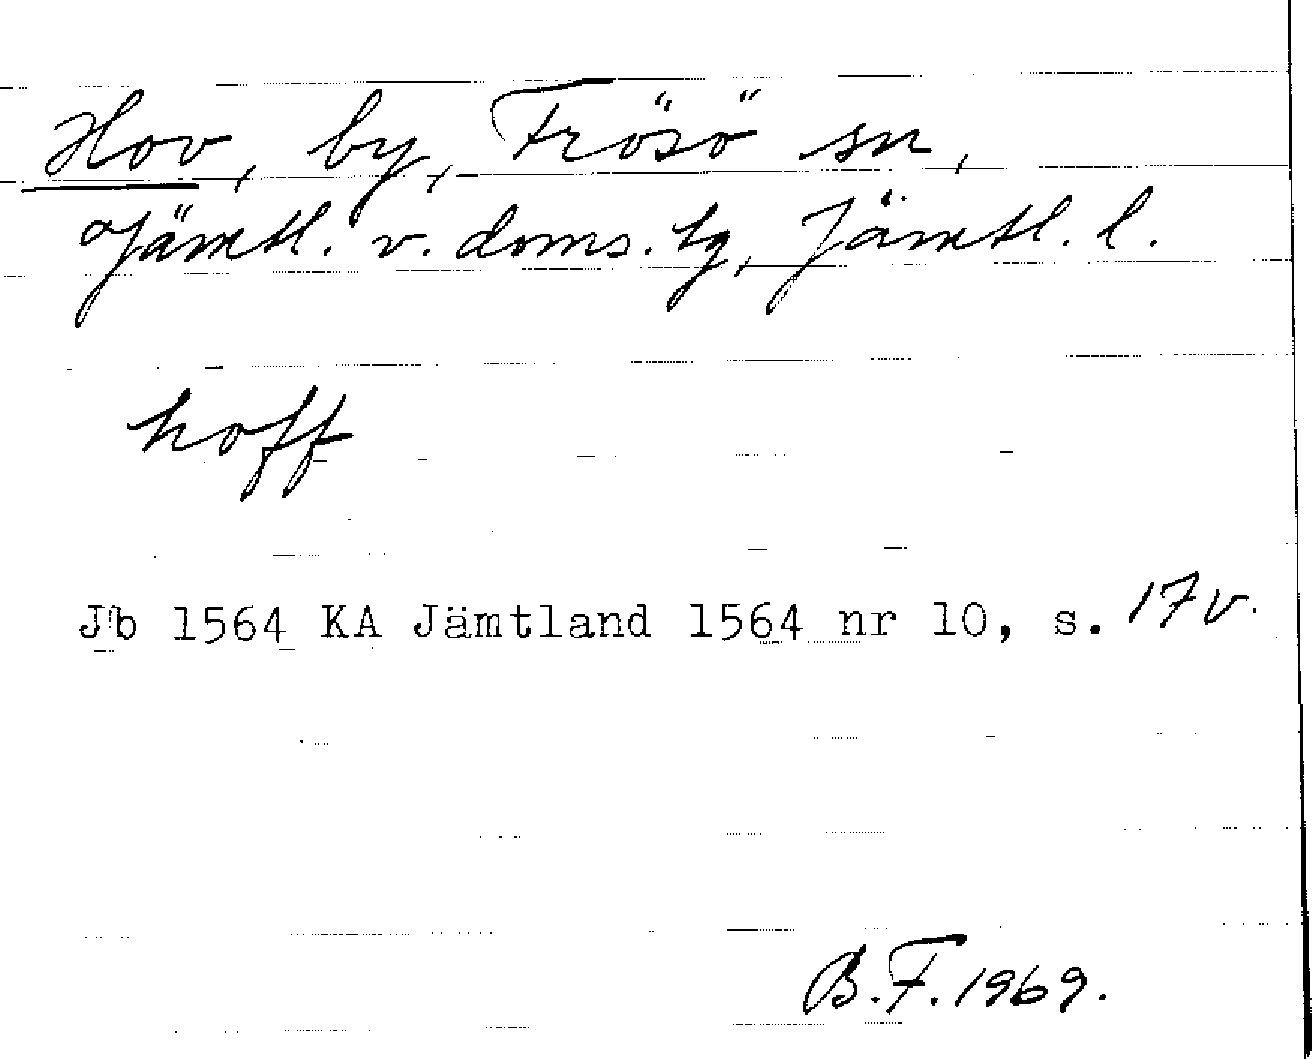 Hov, by, Frösö sn,
Jämtl. v. doms. tg, Jämtl. l.
hoff
Jb 1564 KA Jämtland 1564 nr 10, s. 17v.
B.F. 1969.